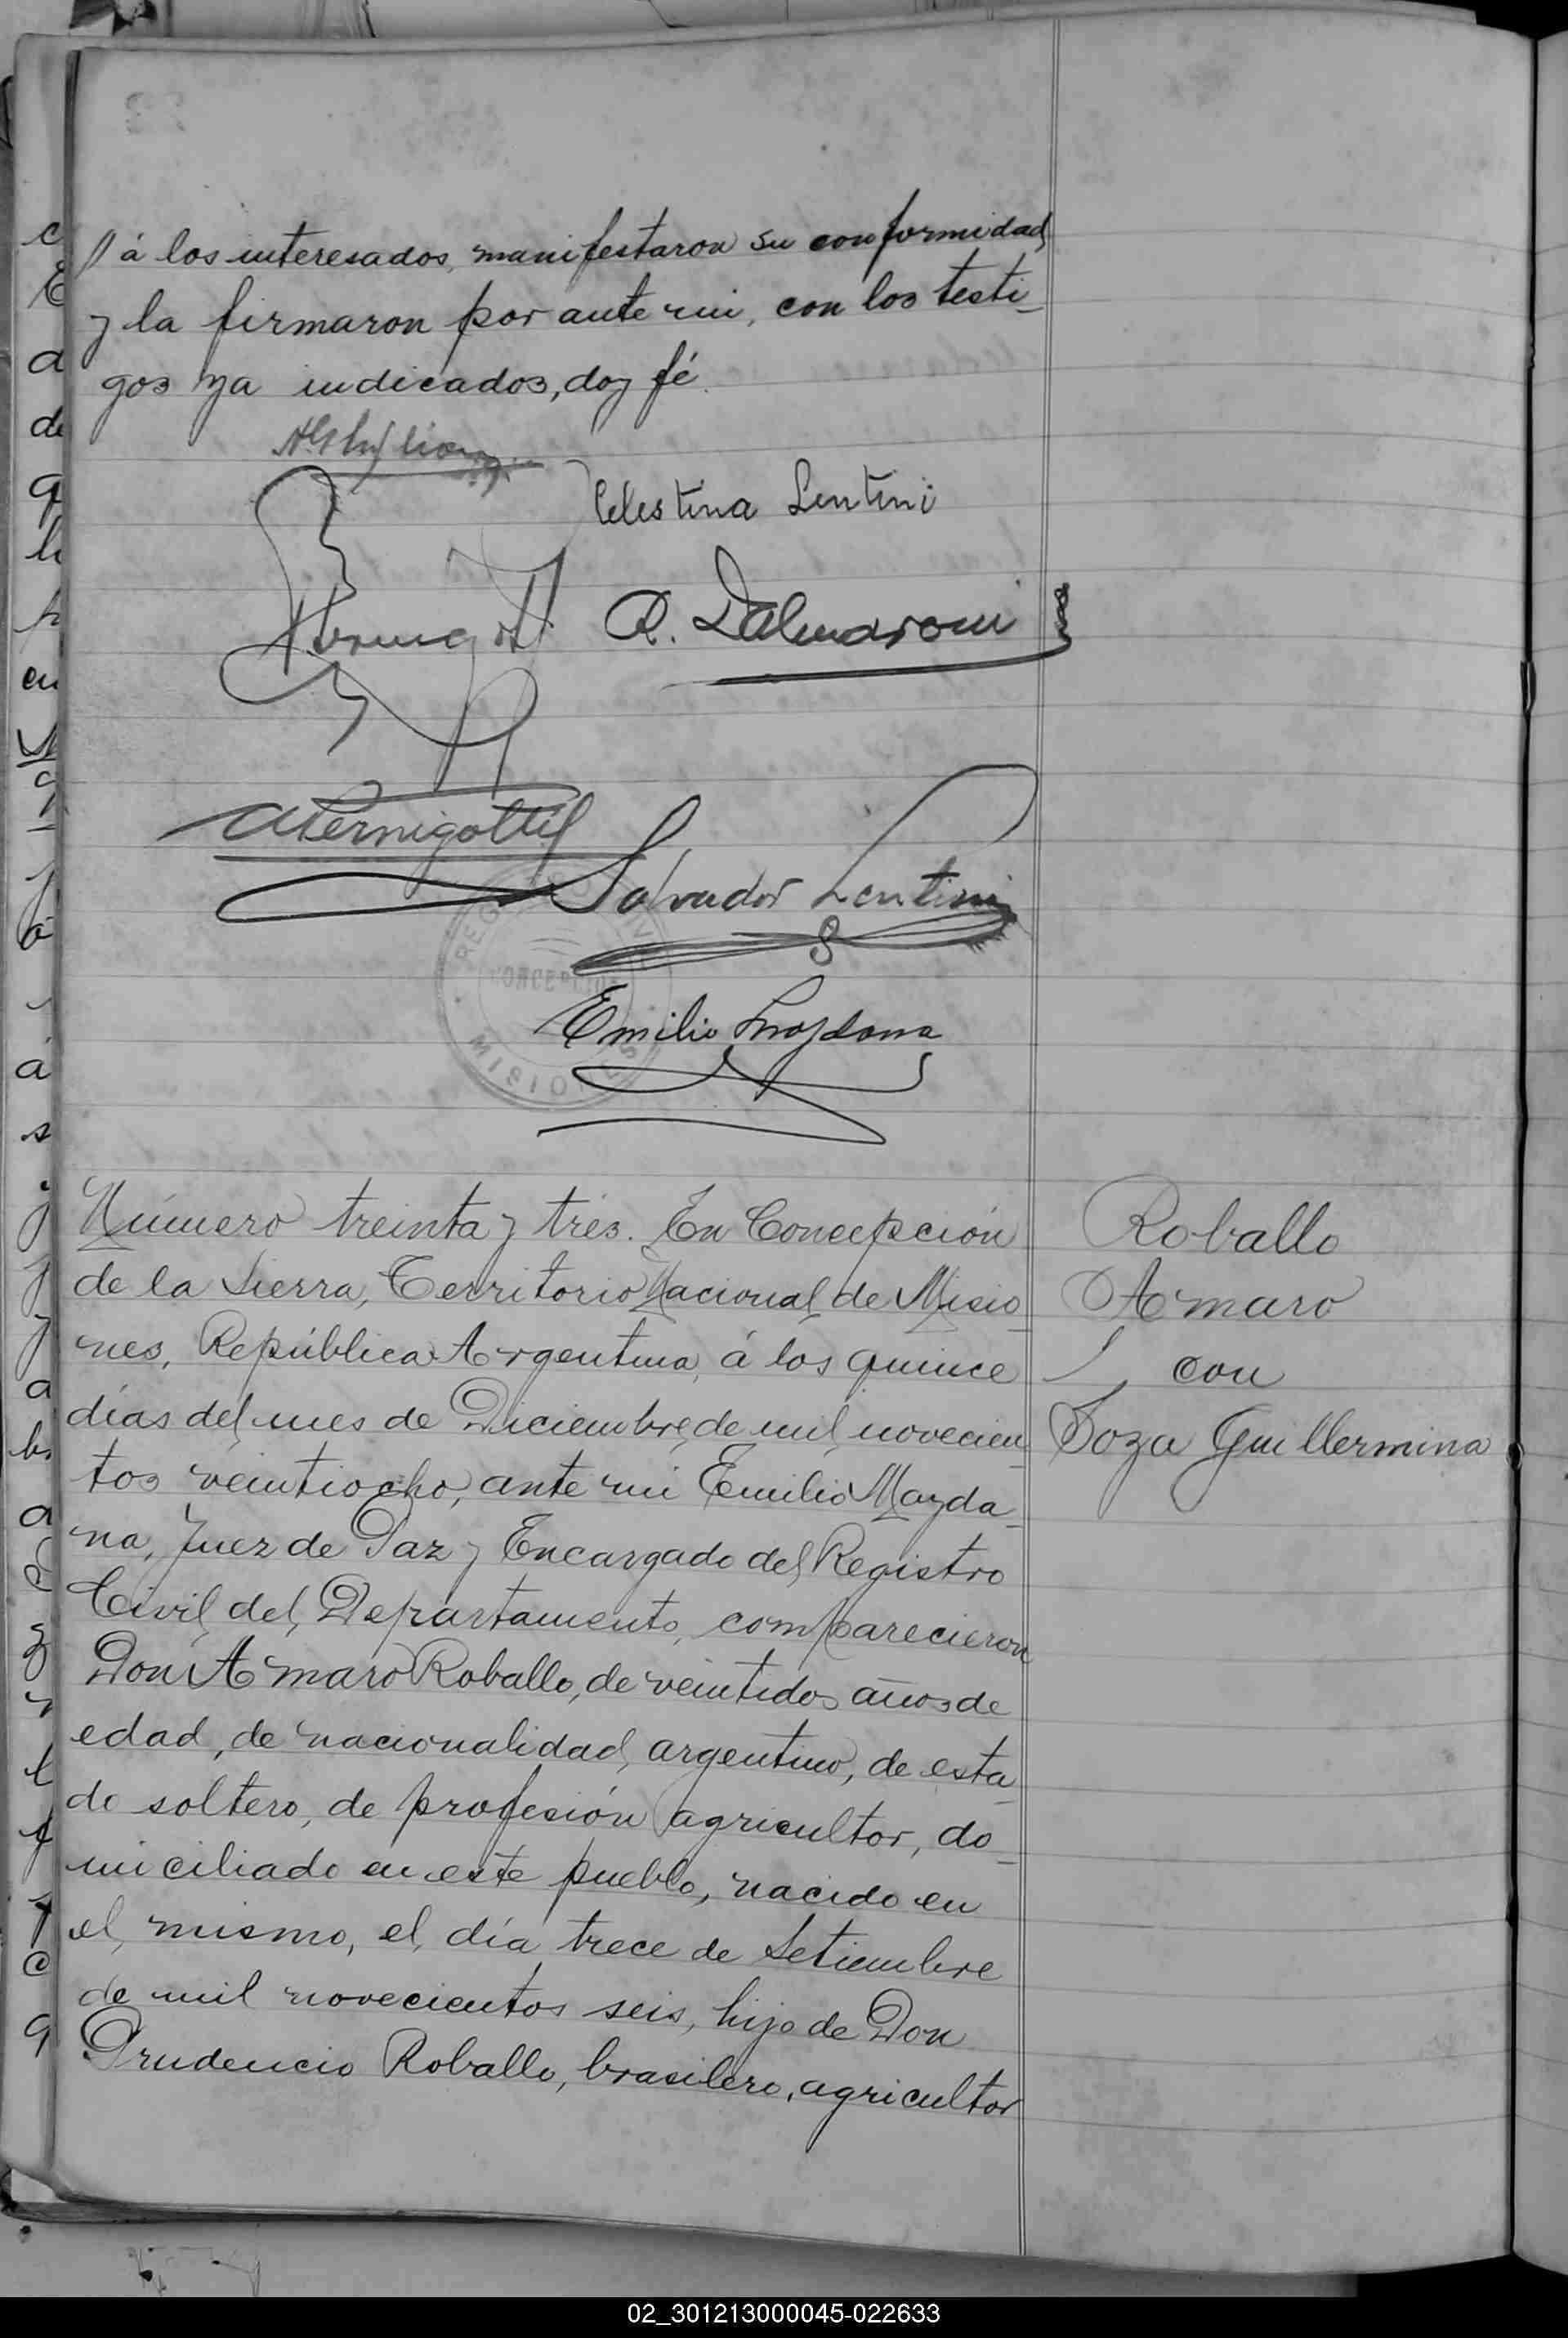 á los interesados, manifestaron su conformidad,
y la firmaron por ante mi, con los testi_
gos ya indicados, doy fé.
Celestina Lentini
R. Dalmaroni
APernigotti
Salvador Lentini
REGISTRO CIVIL
CONCEPCION
MISIONES
Emilio Mazdana
Número treinta y trés. En Concepción
de la Sierra, Territorio Nacional de Misio_
nes, República Argentina, á los quince
días del mes de Diciembre de mil novecien_
tos veintiocho, ante mi Emilio Mazda_
na, Juez de Paz y Encargado del Registro
Civil del Departamento, comparecieron
Don Amaro Roballo, de veintidos años de
edad, de nacionalidad argentino, de esta_
do soltero, de profesión agricultor, do_
miciliado en este pueblo, nacido en
el mismo, el día trece de Setiembre
de mil novecientos seis, hijo de Don
Prudencio Roballo, brasilero, agricultor
Roballo
Amaro
con
Soza Guillermina
02_301213000045-022633